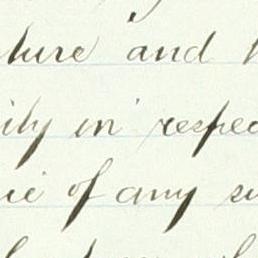 ture and
ily in respec
ue of any su